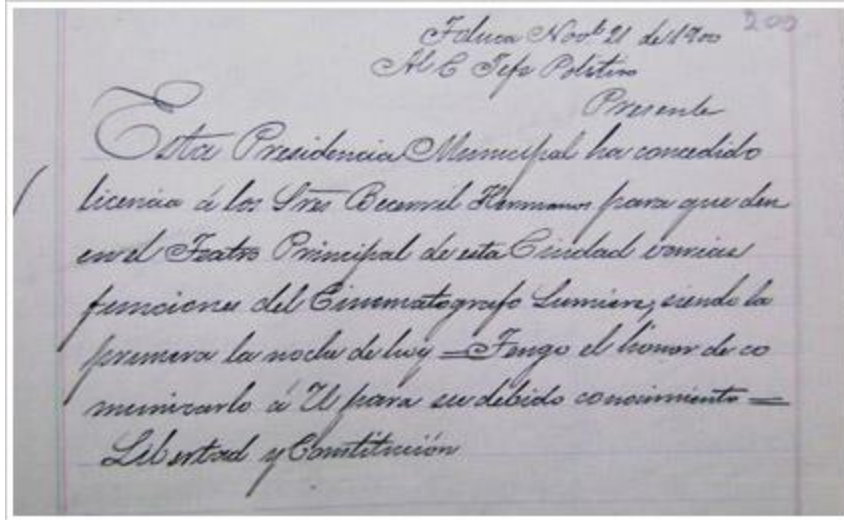 200
Toluca Novb 21 de 1900
Al C Jefe Politico
Presente
Esta Presidencia Municipal ha concedido
licencia á los Sres Becerril Hermanos para que den
en el Teatro Principal de esta Ciudad varias
funciones del Cinematografo Lumiere, siendo la
primera la noche de hoy = Tengo el honor de co
municarlo á U para su debido conocimiento =
Libertad y Constitución